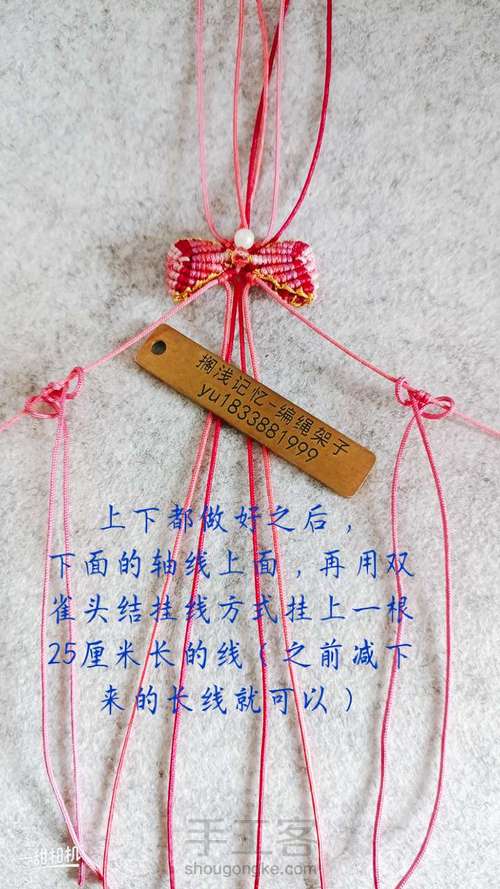 搁浅记忆-编绳架子
yu1833881999
上下都做好之后，
下面的轴线上面，再用双
雀头结挂线方式挂上一根
25厘米长的线（之前减下
来的长线就可以）
甜相机
手工客
shougongke.com